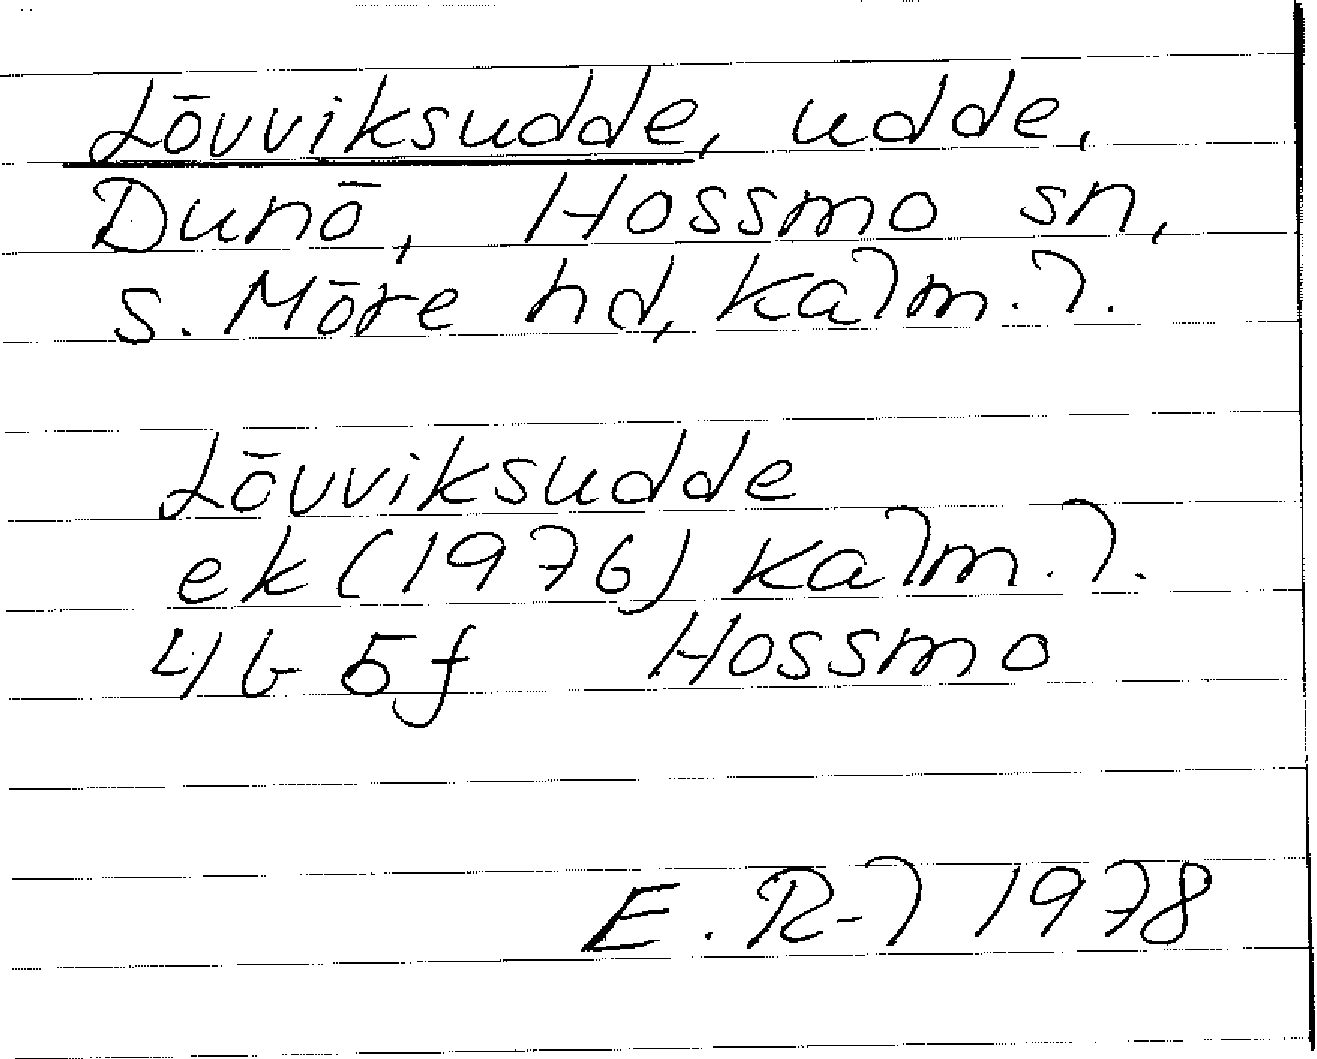 Lövviksudde, udde,
Dunö, Hossmo sn,
S. Möre hd, Kalm. l.
Lövviksudde
ek (1976) Kalm. l.
4G 5f Hossmo
E. R-l 1978